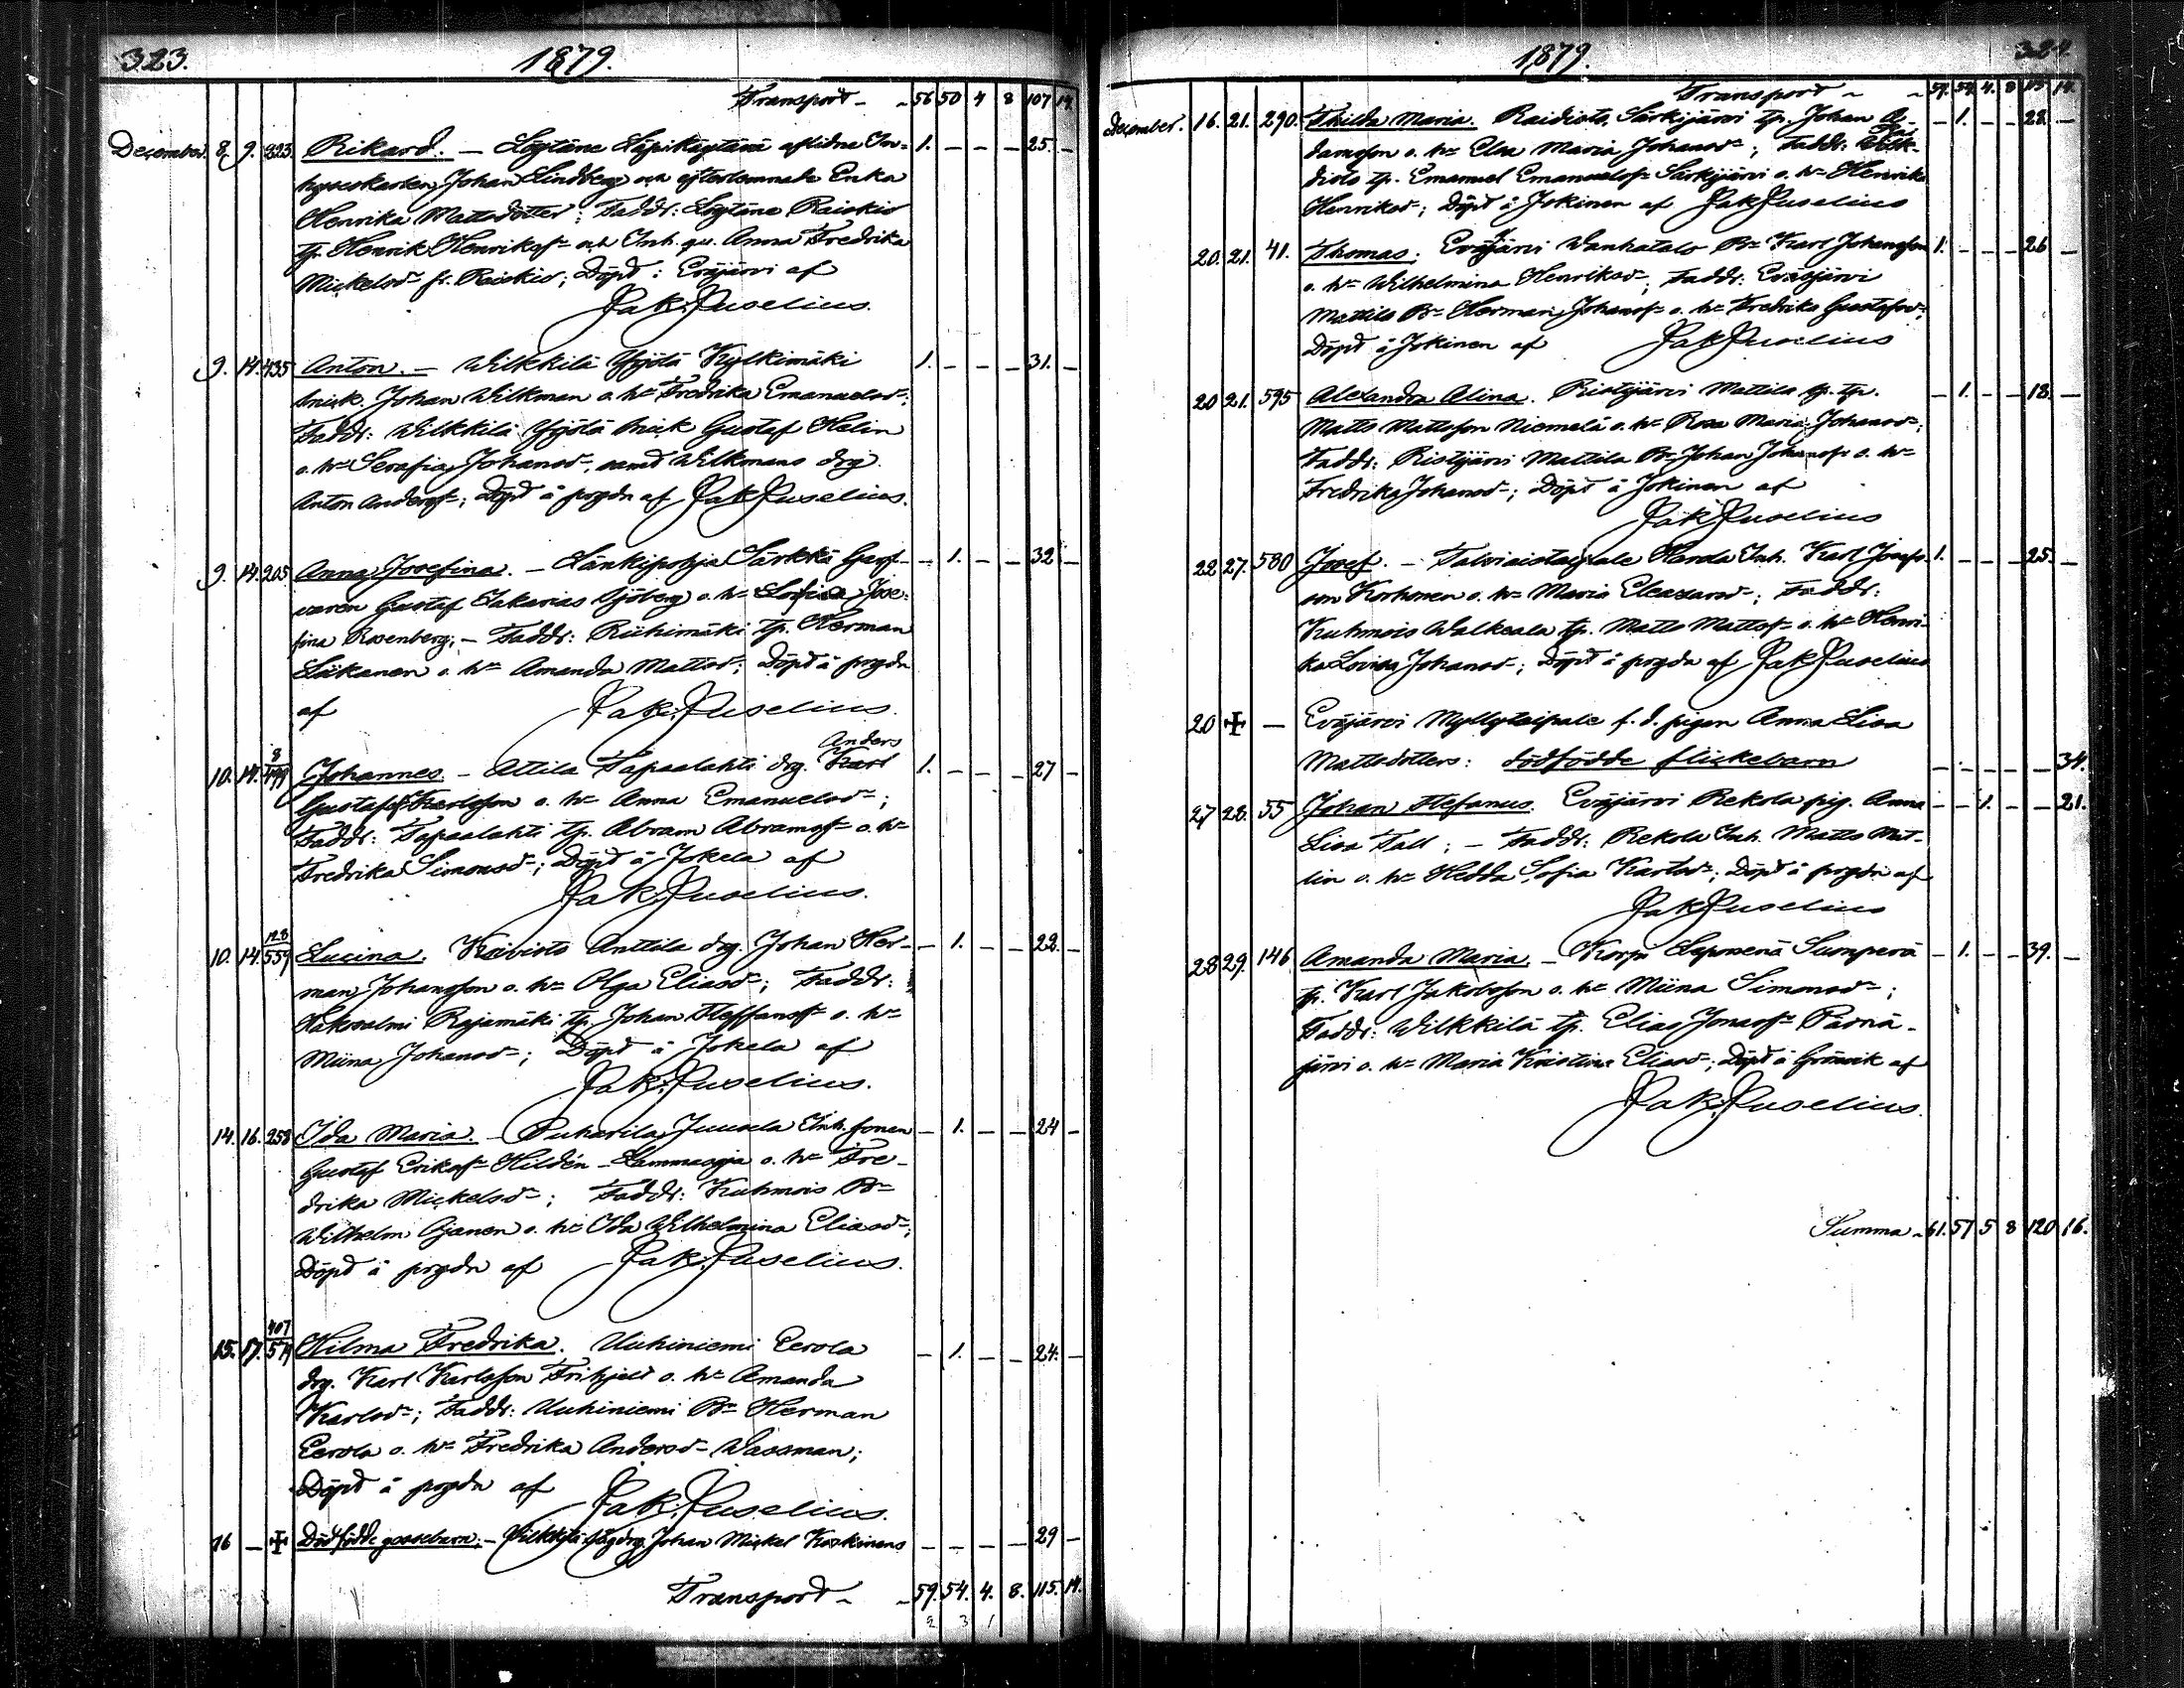 323.
1879.
Transport - - 56 50 4 8 107 14.
December. 8. 9. 323. Rikard. — Löytäne Läpikäytävä aflidne In- 1. — — — 25. —
hyseskarlen Johan Lindberg och efterlemnade Enka
Henrika Mattsdotter; Faddr: Löytäne Raiskio
tp. Henrik Henrikss. och Inh. qv. Anna Fredrika
Mickelsd. fr. Raiskio; Döpt i Eväjärvi af
Jak. Juselius.
9. 14. 435 Anton. — Wilkkilä Yijälä Kylkimäki 1. — — — 31. —
snick. Johan Wilkman o. h. Fredrika Emanuelsd.;
Faddr: Wilkkilä Yijälä snick Gustaf Helin
o. h. Serafia Johansd., samt Wilkmans drg.
Anton Anderss.; Döpt å prgdn af Jak. Juselius.
9. 14. 205 Anna Josefina. — Länkipohja Särkkä Garf- — 1. — — 32. —
varen Gustaf Sakarias Sjöberg o. h. Lovisa Jose-
fina Rosenberg; — Faddr: Riihimäki tp. Herman
Läkanen o. h. Amanda Mattsd.; Döpt å prgdn
af Jak. Juselius.
Anders
10. 14. 8/499 Johannes — Attila Tapaalahti drg. Karl 1. — — — 27 —
Gustafss. Karlsson o. h. Anna Emanuelsd.;
Faddr: Tapaalahti tp. Abram Abramss. o. h.
Fredrika Simonsd.; Döpt å Jokela af
Jak. Juselius.
10. 14. 128/559 Lucina. Koivisto Anttila drg. Johan Her- — 1. — — 22. —
man Johansson o. h. Olga Eliasd.; Faddr:
Hakosalmi Rajamäki tp. Johan Steffanss. o. h.
Miina Johansd.; Döpt å Jokela af
Jak. Juselius.
14. 16. 258 Ida Maria. — Puharila Juusela Inh. sonen — 1. — — 24 —
Gustaf Erikss. Hildén — Lammasoja o. h. Fre-
drika Mickelsd.; Faddr: Kuhmois B.
Wilhelm Ojanen o. h. Ida Wilhelmina Eliasd.;
Döpt å prgdn af Jak. Juselius.
15. 17. 407/574 Hilma Fredrika. Uuhiniemi Eerola — 1. — — 24. —
drg. Karl Karlsson Frihjelt o. h. Amanda
Karlsd.; Faddr: Uuhiniemi B. Herman
Eerola o. h. Fredrika Andersd. Wassman;
Döpt å prgdn af Jak. Juselius.
16 — ✠ Dödfödde gossebarn; — Wilkkilä drg. Johan Mickel Koskinens — — — — 29 —
Transport - - 59. 54. 4. 8. 115. 14.
2 3 1
1879.
324
Transport - - 59. 54. 4. 8 115 14.
December. 16. 21. 290. Thilda Maria. Raidisto, Särkijärvi tp. Johan A- — 1. — — 28. —
damsson o. h. Elsa Maria Johansd.; Faddr: Rai-
disto tp. Emanuel Emanuelss. Särkijärvi o. h. Henrika
Henriksd.; Döpt å Jokinen af Jak Juselius
20. 21. 41. Thomas. Eväjärvi Wanhatalo B. Karl Johansson 1. — — — 26 —
o. h. Wilhelmina Henriksd.; Faddr: Eväjärvi
Mattila B. Herman Johanss. o. h. Fredrika Gustafsd.;
Döpt å Jokinen af Jak Juselius
20 21. 595 Alexandra Alina. Ristijärvi Mattila tp. — 1. — — 18. —
Matts Mattsson Niemelä o. h. Rosa Maria Johansd.;
Faddr: Ristijärvi Mattila B. Johan Johanss. o. h.
Fredrika Johansd.; Döpt å Jokinen af
Jak Juselius
22 27. 580 Josef. — Talviaistaipale Harda Inh. Karl Josefs- 1. — — — 25. —
son Korhonen o. h. Maria Eleazarsd.; Faddr:
Kuhmois Walkeala tp. Matts Mattss. o. h. Henri-
ka Lovisa Johansd.; Döpt å prgdn af Jak Juselius
20 ✠ — Eväjärvi Myllytaipale f. d. pigan Anna Lisa
Mattsdotters: dödfödde flickebarn — — — — — 34.
27 28. 55 Johan Stefanus. Eväjärvi Rekola pig. Anna — — 1. — — 21.
Lisa Fall; — Faddr: Rekola Inh. Matts Mat-
lin o. h. Hedda Sofia Karlsd.; Döpt å prgdn af
Jak Juselius
28 29. 146 Amanda Maria. — Korpi Leponenä Sumperä — 1. — — 39. —
tp. Karl Jakobsson o. h. Miina Simonsd.;
Faddr: Wilkkilä tp. Elias Jonass. Pärnä-
järvi o. h. Maria Kristina Eliasd.; Döpt å Grönvik af
Jak. Juselius.
Summa - 61. 57 5 8 120 16.